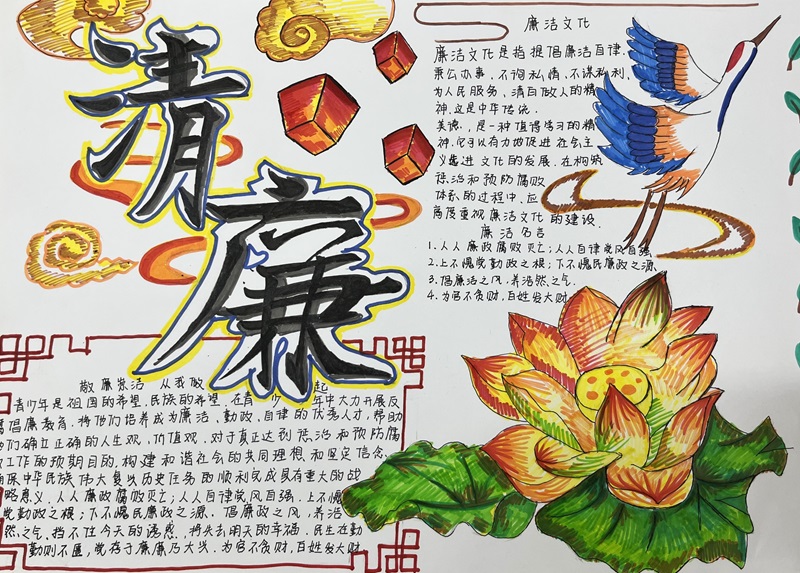 清
廉
廉洁文化
廉洁文化是指提倡廉洁自律、
秉公办事、不询私情、不谋私利、
为人民服务、清白做人的精
神.这是中华传统.
美德.，是一种值得学习的精
神.它可以有力地促进社会主
义先进文化的发展.在构筑
惩治和预防腐败
体系的过程中.应
高度重视廉洁文化的建设.
廉洁名言
1.人人廉政腐败灭亡;人人自律党风自强
2.上不愧党勤政之根;下不愧民廉政之源.
3.倡廉洁之风,养浩然之气.
4.为官不贪财,百姓发大财
敬廉崇洁 从我做 起
青少年是祖国的希望.民族的希望.在青 少 年中大力开展反
腐倡廉教育.将他们培养成为廉洁、勤政、自律的优秀人才,帮助
他们确立正确的人生观.价值观.对于真正达到惩治和预防腐
败工作的预期目的,构建和谐社会的共同理想和坚定信念、
确保中华民族伟大复兴历史任务的顺利完成具有重大的战
略意义、人人廉政腐败灭亡;人人自律党风自强.上不愧
党勤政之根;下不愧民廉政之源、倡廉政之风,养浩
然之气.挡不住今天的诱惑,将失去明天的幸福.民生在勤
勤则不匮,党存于廉廉乃大兴.为官不贪财,百姓发大财